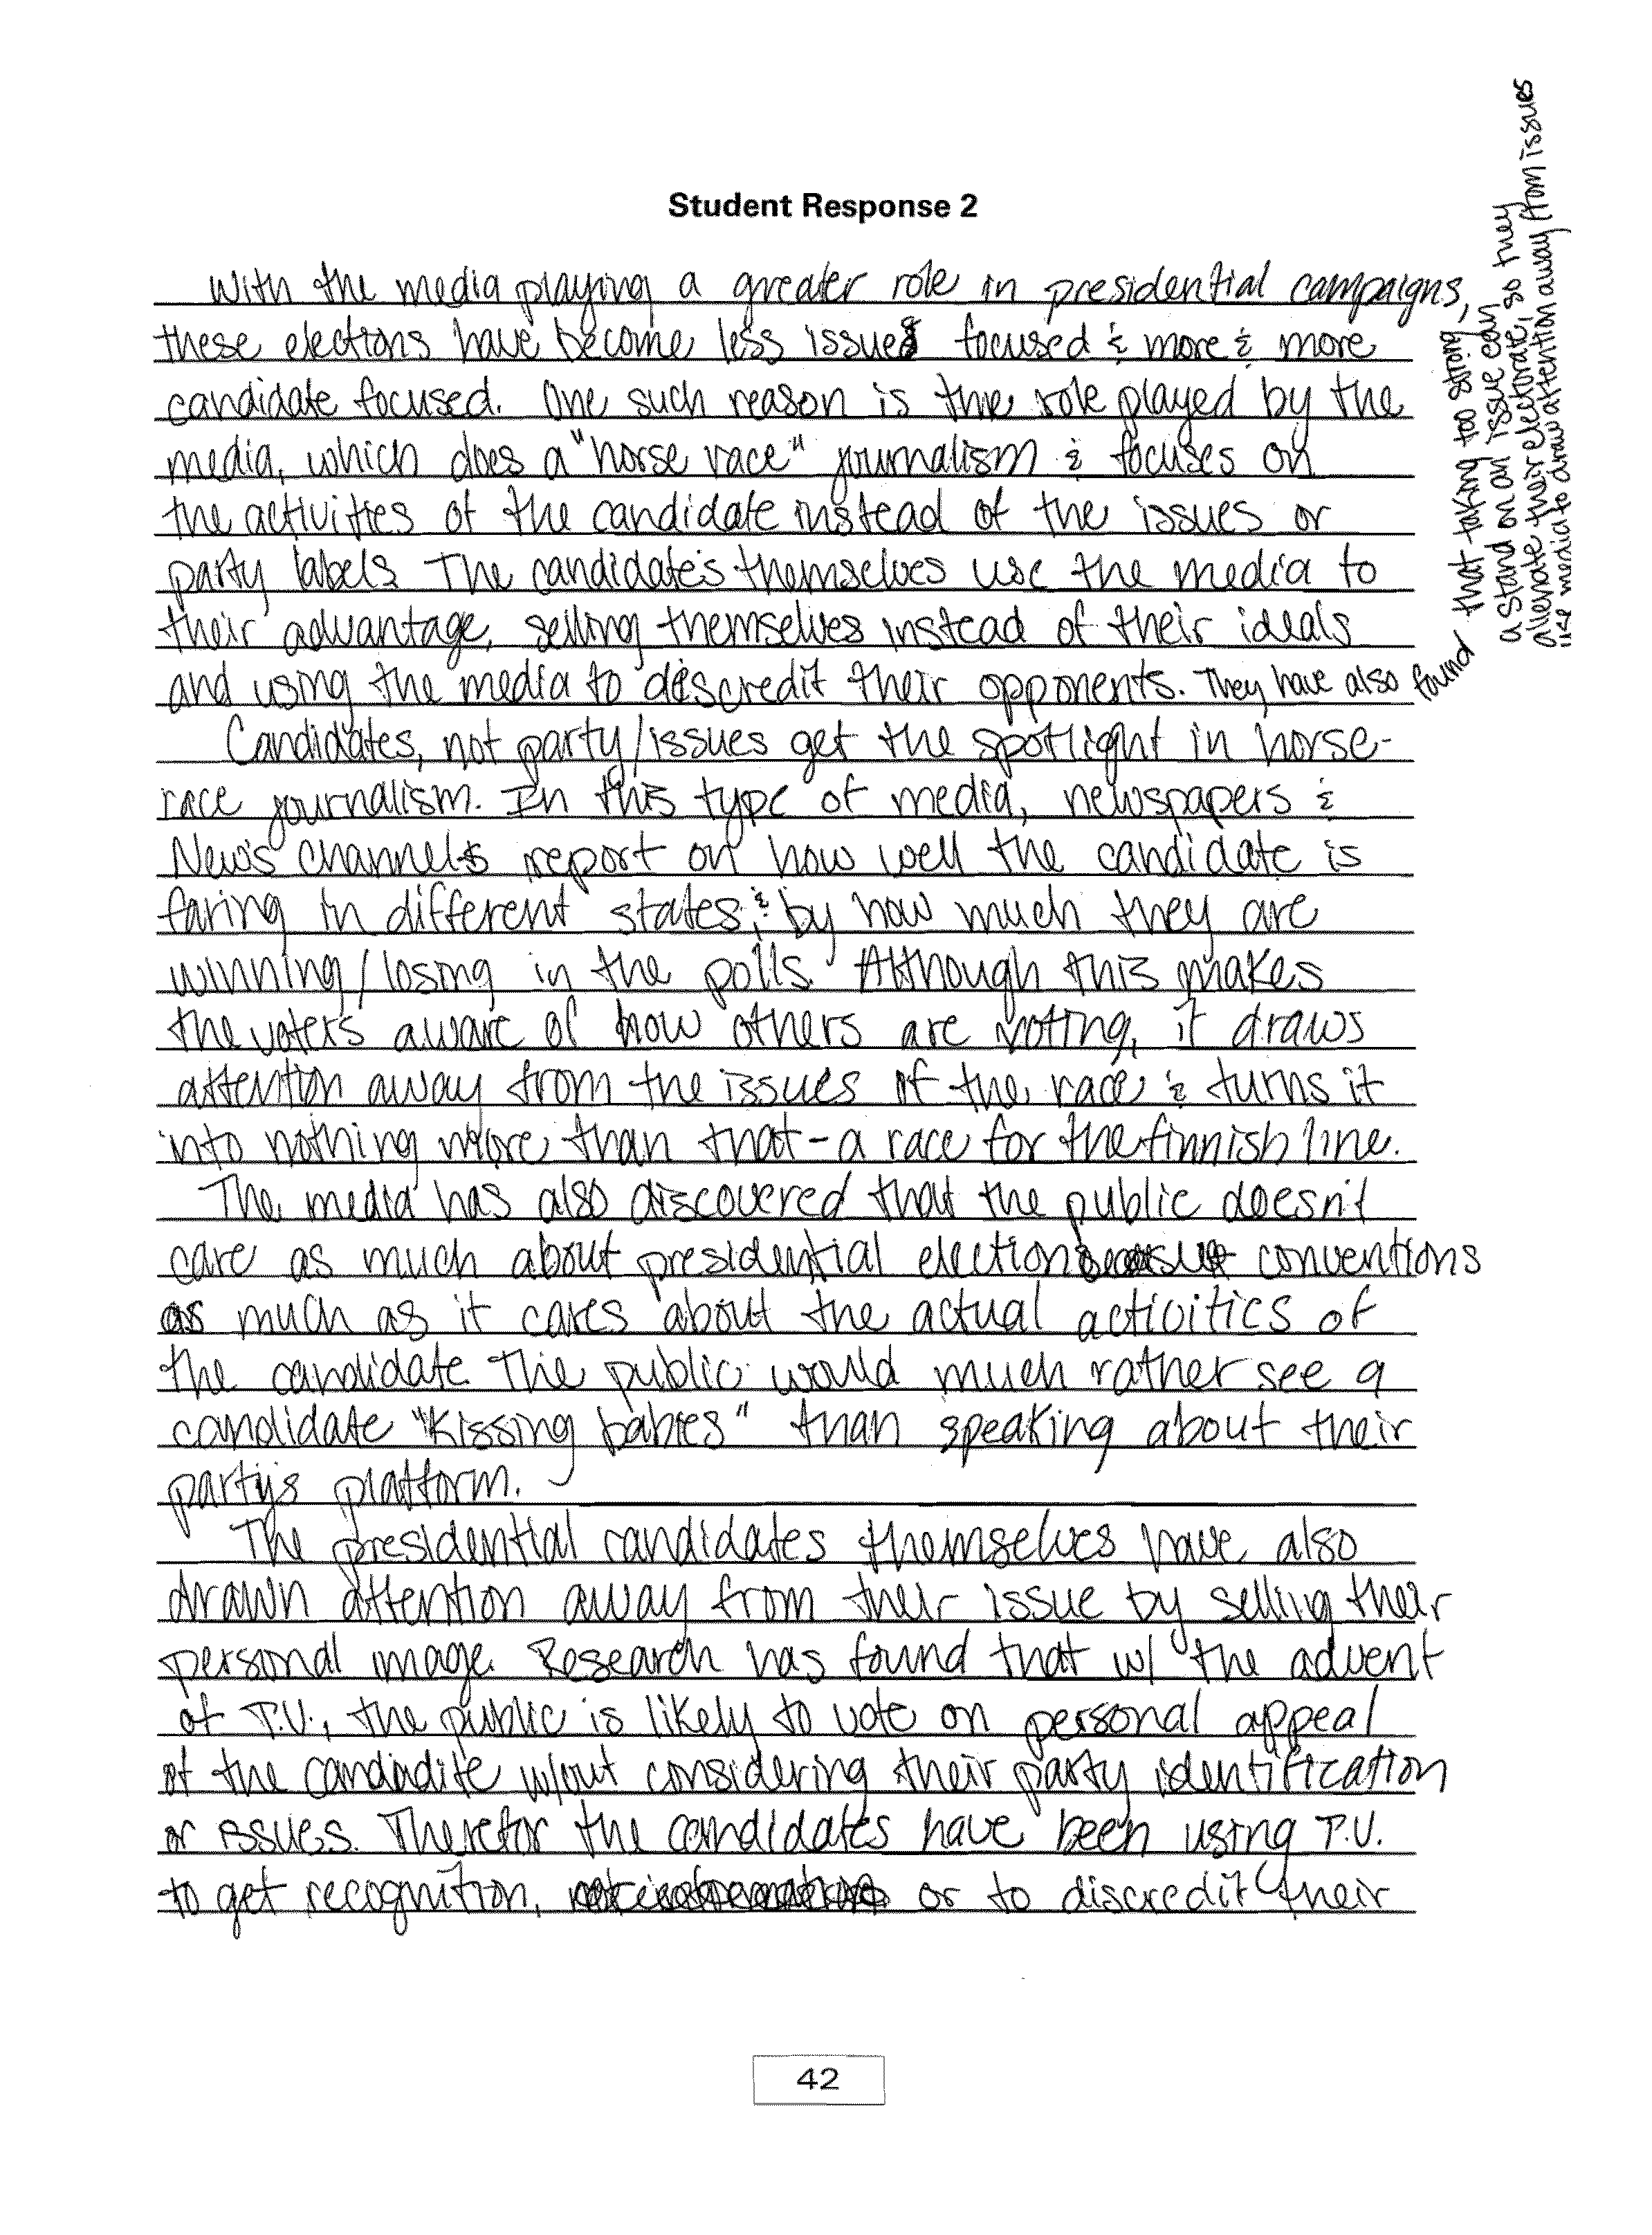 Student Response 2
With the media playing a greater role in presidential campaigns,
these elections have become less issue focused & more & more
candidate focused. One such reason is the role played by the
media, which does a "horse race" journalism & focuses on
the activities of the candidate instead of the issues or
party labels. The candidates themselves use the media to
their advantage, selling themselves instead of their ideals
and using the media to descredit their opponents. They have also found
that taking too strong
a stand on an issue can
alienate their electorate, so they
use media to draw attention away from issues
Candidates, not party/issues get the spotlight in horse-
race journalism. In this type of media, newspapers &
News channels report on how well the candidate is
faring in different states, & by how much they are
winning/losing in the polls. Although this makes
the voters aware of how others are voting, it draws
attention away from the issues of the race & turns it
into nothing more than that - a race for the finnish line.
The media has also discovered that the public doesn't
care as much about presidential election conventions
as much as it cares about the actual activities of
the candidate. The public would much rather see a
candidate "kissing babies" than speaking about their
party's platform.
The presidential candidates themselves have also
drawn attention away from their issue by selling their
personal image. Research has found that w/ the advent
of T.V., the public is likely to vote on personal appeal
of the candidite w/out considering their party identification
or issues. Therefor the candidates have been using T.V.
to get recognition, or to discredit their
42